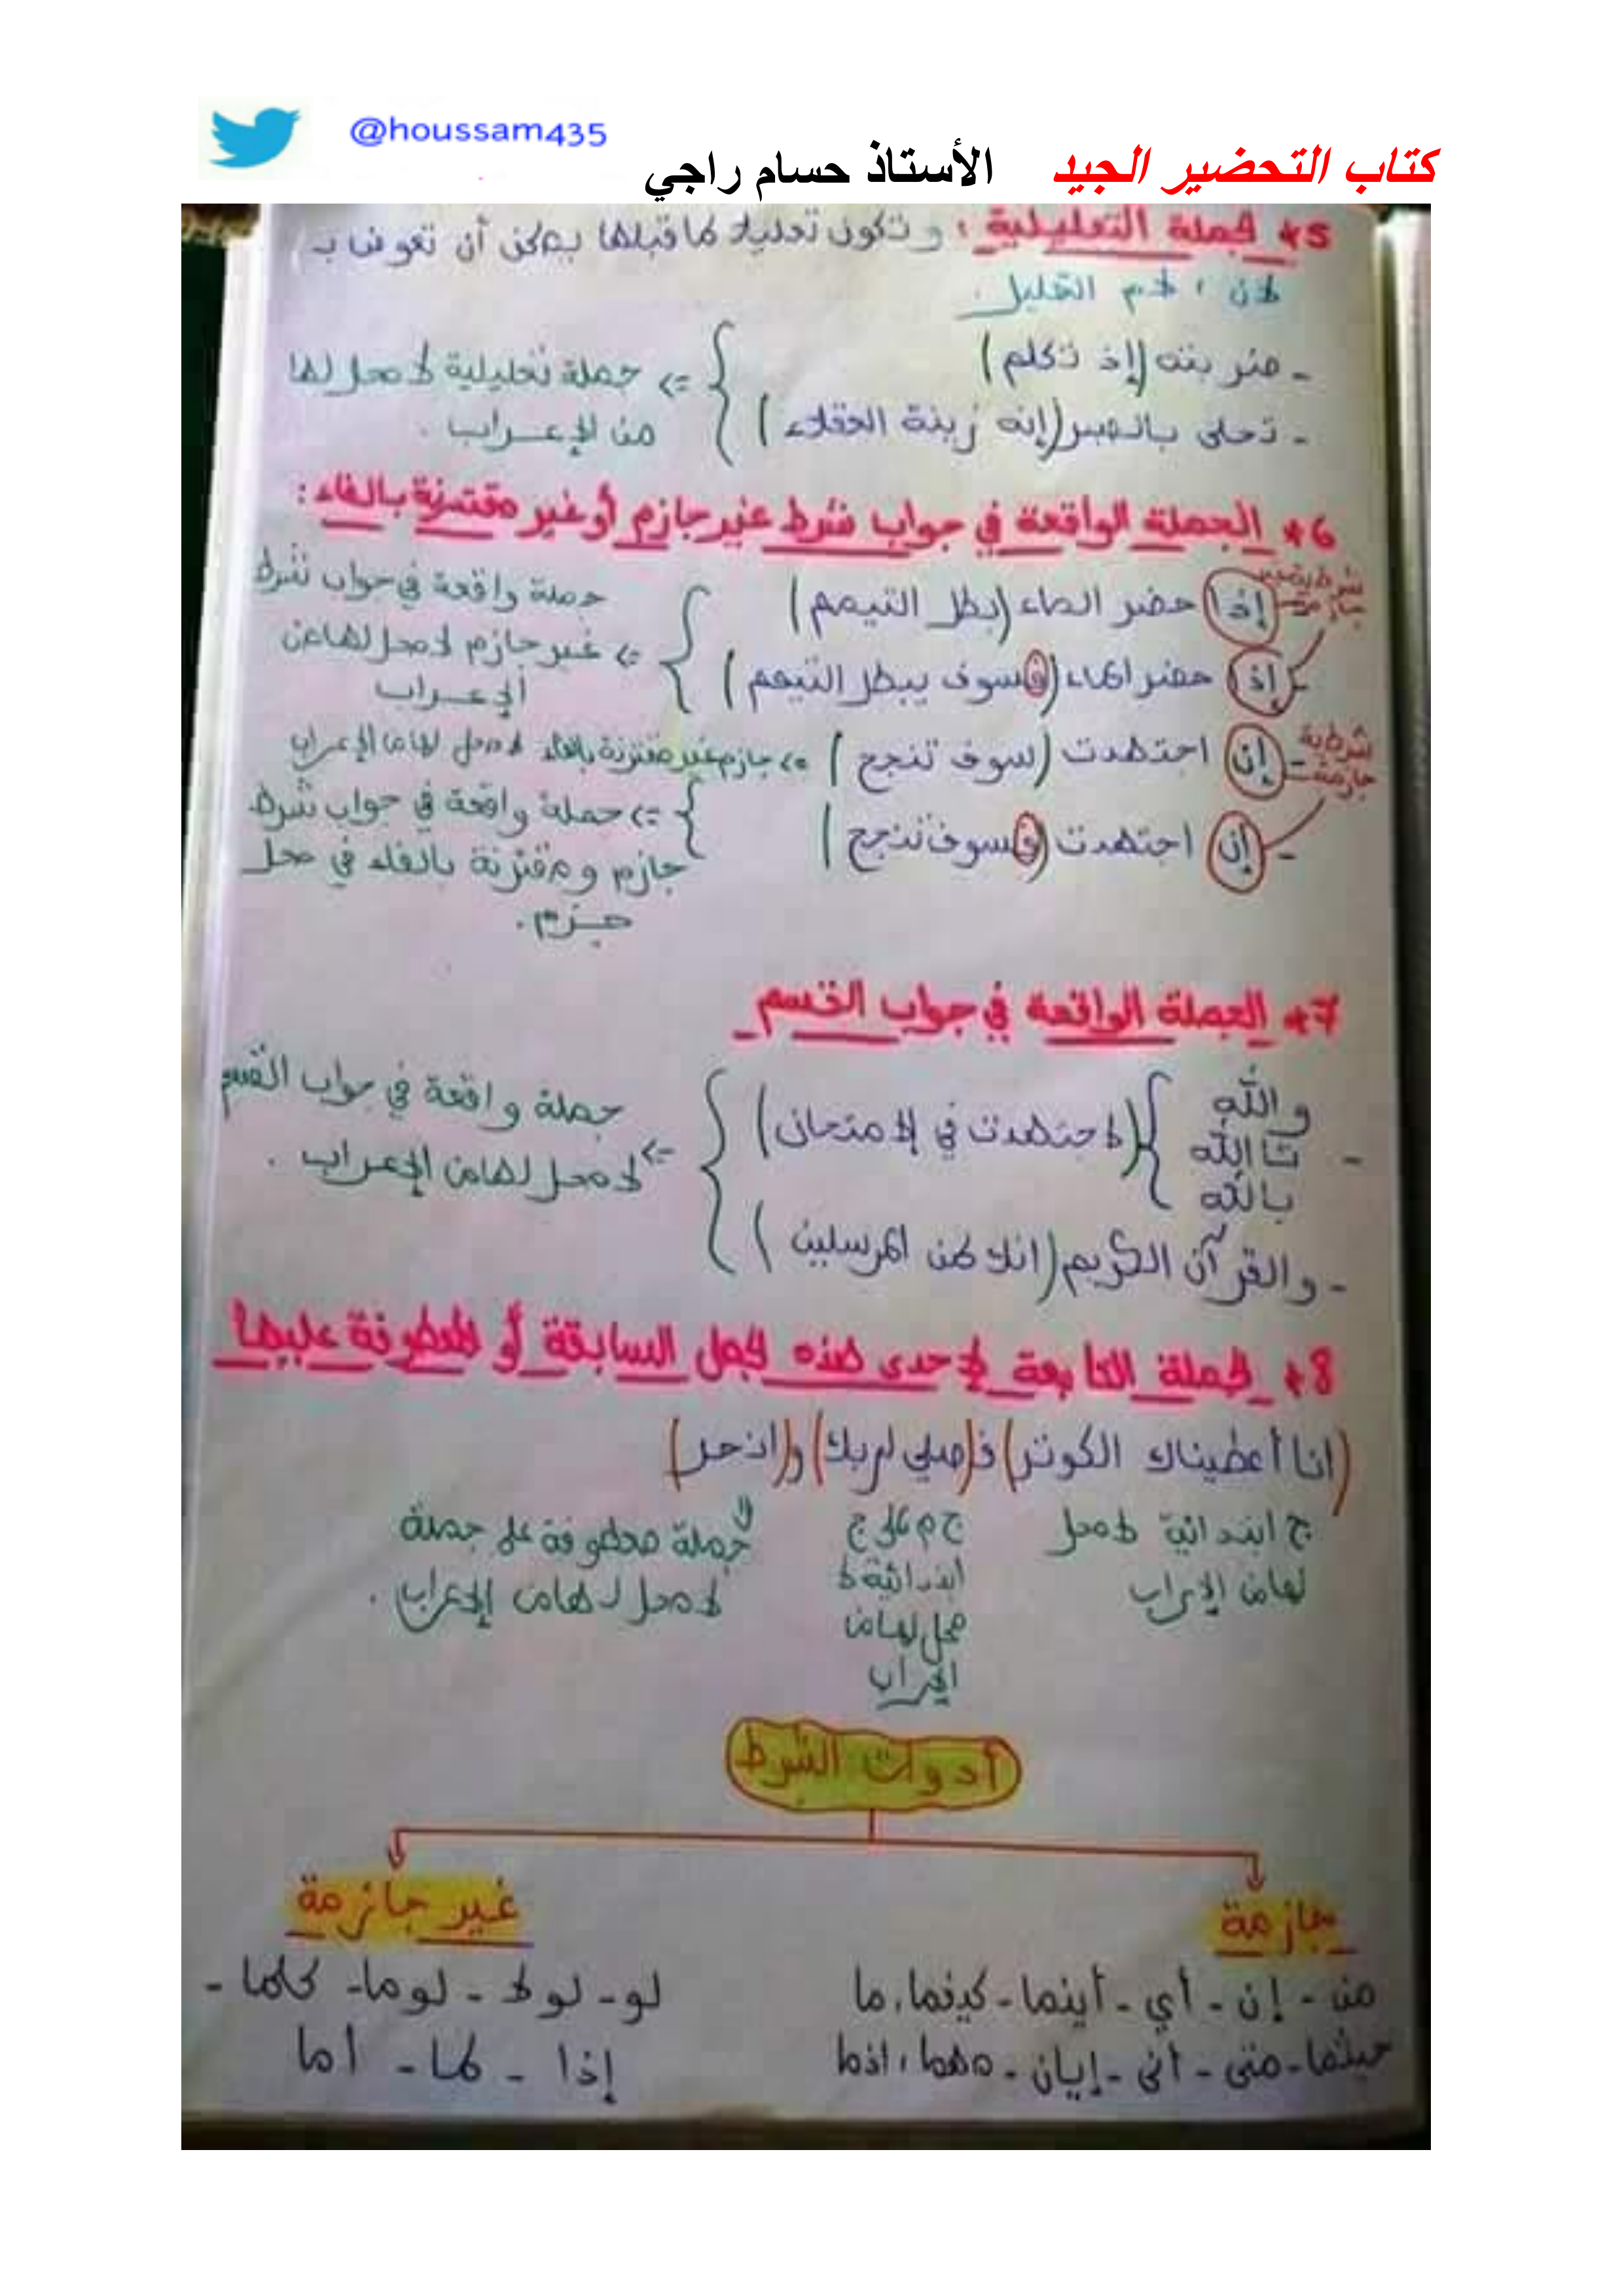 @houssam435
كتاب التحضير الجيد الأستاذ حسام راجي
5* الجملة التعليلية : و تكون تعليلا لما قبلها يمكن أن تعوض بـ
لأن ، لام التعليل
- ضربته (إذ تكلم)
- تحلى بالصبر (إنه زينة العقلاء)
=> جملة تعليلية لا محل لها
من الإعراب .
6* الجملة الواقعة في جواب شرط غير جازم أو غير مقترنة بالفاء :
شرطية غير جازمة
- إذا حضر الماء (بطل التيمم)
- إذا حضر الماء (فسوف يبطل التيمم)
جملة واقعة في جواب شرط
=> غير جازم لا محل لها من
الإعراب
شرطية جازمة
- إن اجتهدت (سوف تنجح) => جازم غير مقترنة بالفاء لا محل لها من الإعراب
- إن اجتهدت (فسوف تنجح)
=> جملة واقعة في جواب شرط
جازم ومقترنة بالفاء في محل
جزم .
7* الجملة الواقعة في جواب القسم
والله
- تالله (لاجتهدت في الامتحان)
بالله
- والقرآن الكريم (انك لمن المرسلين)
جملة واقعة في جواب القسم
=> لا محل لها من الإعراب .
8* الجملة التابعة لإحدى هذه الجمل السابقة أو المعطوفة عليها
(انا أعطيناك الكوثر) فـ (صلي لربك) و (انحر)
ج ابتدائية لا محل
لها من الإعراب
ج م على ج
ابتدائية لا
محل لها من
الإعراب
جملة معطوفة على جملة
لا محل لها من الإعراب .
أدوات الشرط
جازمة
من - إن - أي - أينما - كيفما، ما
حيثما - متى - أنى - إيان - مهما، اذما
غير جازمة
لو - لولا - لوما - كلما -
إذا - لما - أما